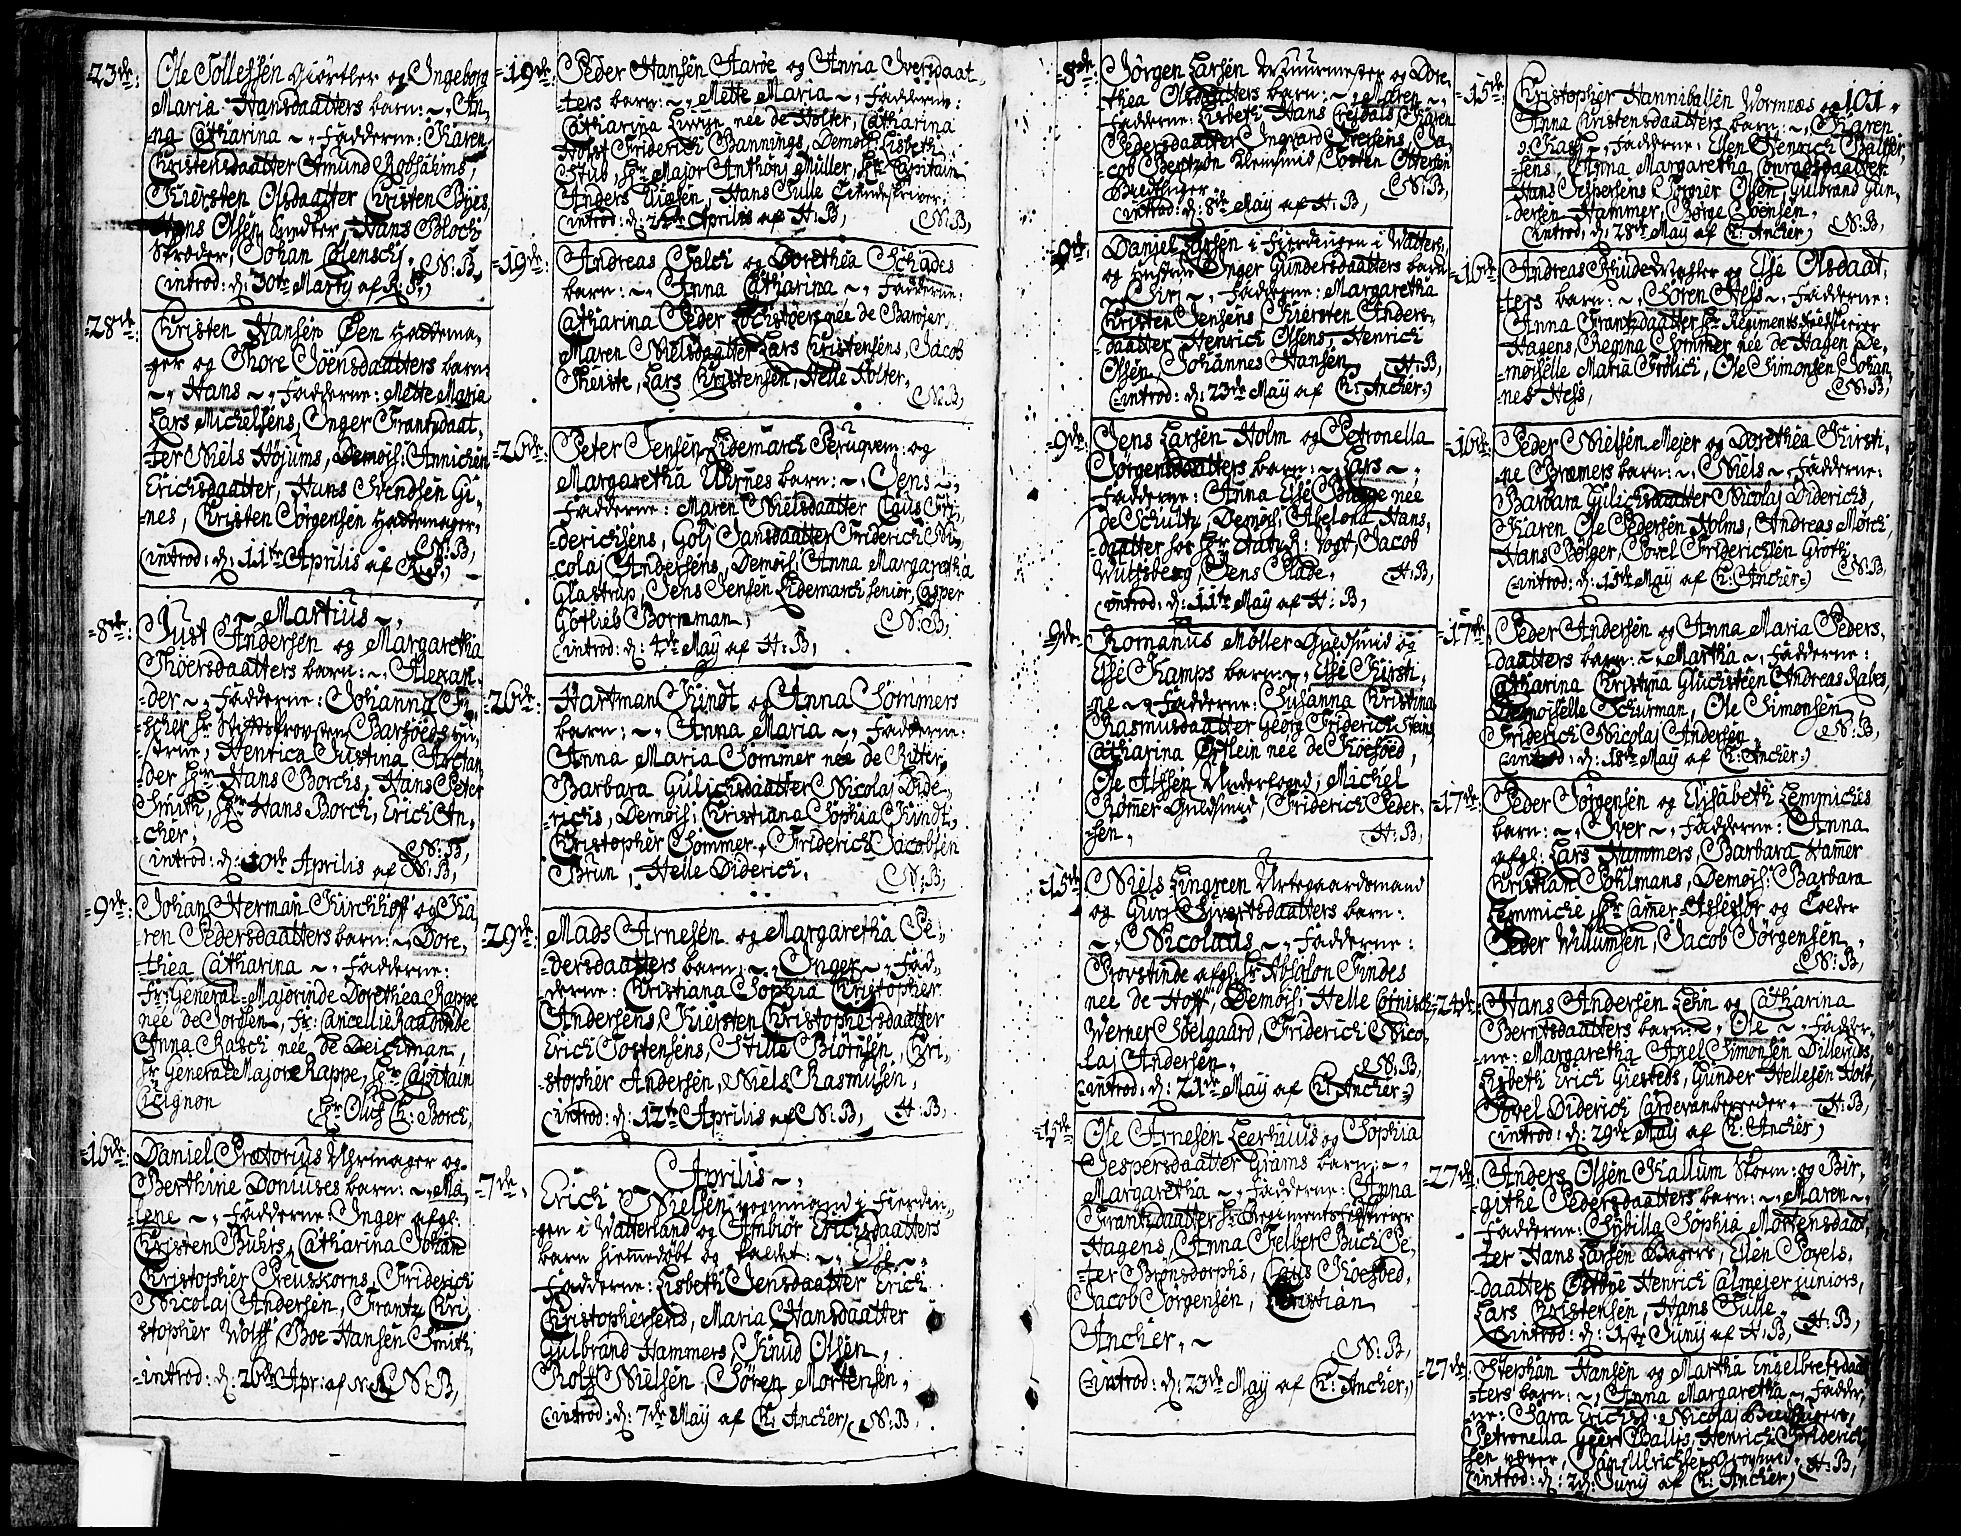 -23de: Ole Tollefsen Giörtler og Ingeborg
Maria Hansdaatters barn: ~, An-
na Catharina ~, Fadderne: Karen
Christensdaatter Amund
Kiersten Olsdaatter Kristen Byes
Hans Olsen Snedker, Hans Bloch
Skræder, Johan Clensch,
N: B,
(introd: d: 30te Marty af
-28de: Kristen Hansen Øen Hattema-
ger og Thore Joensdaatters barn
~, Hans ~, Fadderne: Mette Maria
Lars Michelsens, Inger Frantzdaat-
ter Niels Højums, Demois: Annichen
Erichsdaatter, Hans Svendsen Gi-
nes, Kristen Jörgensen Hattemager,
N: B,
(introd: d: 11te Aprilis af
~, Martius ~,
-8de: Just Andersen og Margaretha
Thöersdaatters barn: ~, Alexan-
der ~, Fadderne: Johanna Fi-
scher, Hr
strue, Henrica Justina Arctan-
der Hr: Hans Borchs, Hans Peter
Smith, Hr Hans Borch, Erich An-
cher,
N: B,
(introd: d: 10de Aprilis af N: B,
-9de: Johan Herman Kirchhoff og Ka-
ren Pedersdaatters barn: ~, Dore-
thea Catharina ~, Fadderne:
Fr: General-Majorinde Dorethea Rappe
née de Jordan, Fr: Cancellie Raadinde
Anna Rasch née de Deichman,
Hr General Major Rappe, Hr Capitain
Cicignon Hr Oluf C: Borch,
-16de: Daniel Prætorius Uhrmager og
Berthine Doniuses barn: ~, Ma-
lene ~, Fadderne: Inger afgl:
Kristen Buhrs, Catharina Johan
Kristopher Preuskorns, Friderich
Nicolaj Andersen, Frantz Kri-
stopher Wolff, Boe Hansen Smith,
-introd: d: 26de Apr: af N: B,
-19de: Peder Hansen Aarøe og Anna Iversdaat-
ters barn: ~, Mette Maria ~, Fadderne:
Catharina née de Holter, Catharina
Holst Friderich Bannings, Demois: Lisbeth
Stub, Hr Major Anthonj Müller, Hr Capitain
Anders, Hans Tulle
(introd: d: 24de Aprilis af H: B, N: B,
-19de: Andreas Falch og Dorethea Schades
barn: ~, Anna Catharina ~, Fadderne:
Catharina Peder née de Barner,
Maren Nielsdaatter Lars Kristensens, Jacob
Theiste, Lars Kristensen, Helle Holter,
N: B,
-26de: Peter Jensen Lidemarch Peruqvem: og
Margaretha Uhrnes barn: ~, Jens ~,
Fadderne: Maren Nielsdaatter Claus Fri-
derichsens, Golj Jansdaatter Friderich Ni-
colaj Andersens, Demois: Anna Margaretha
Glastrup, Jens Jensen Lidemarch senior, Casper
Gotlieb Borrman,
N: B,
(introd: d: 4de Maij af H: B,
-26de: Hartman Kindt og Anna Sommers
barn: ~, Anna Maria ~, Fadderne:
Anna Maria Sommer née de Ritter,
Barbara Gulichsdaatter Nicolaj Dide-
richs, Demois: Christiana Sophia Kindt,
Kristopher Sommer, Friderich Jacobsen
Brun, Helle Diderich,
N: B,
-29de: Mads Arnesen og Margaretha Pe-
dersdaatters barn: ~, Inger ~, Fad-
derne: Christiana Sophia Kristopher
Andersens, Kiersten Kristophersdaatter
Erich Tostensens, Stille Biörnsen, Kri-
stopher Andersen, Niels Rasmusen,
(introd: d: 12te Aprilis af N: B, H: B,
Aprilis ~,
-7de: Erich Nielsen vognmand i Fierdin-
gen i Watterland og Ambiör Erichsdaatters
barn hiemmedöbt og kaldet: ~, Else ~,
Fadderne: Lisbeth Jensdaatter Erich
Kristophersens, Maria Hansdaatter
Gulbrand Hammers, Knud Olsen,
Rolf Nielsen, Sören Mortensen,
(introd: d: 7de Maij af C: Ancher,) N: B,
101.
-8de: Jörgen Larsen Muurmester og Dore-
thea Olsdaatters barn: ~, Maren ~,
Fadderne: Lisbeth Hans Karen
Pedersdaatter Ingvard Ja-
cob Bentzon Klemmis, Tosten Ottersen
Buedtinger,
N: B,
(introd: d: 8de Maij af H: B,
-9de: Daniel Larsen i Fierdingen i Watterl,
og hustru Inger Gundersdaatters barn
~, Siri ~, Fadderne: Margaretha
Kristen Jensens, Kiersten Anders-
daatter Henrich Olsens, Henrich
Olsen, Johannes Hansen, H: B,
(introd: d: 23de Maij af C: Ancher,)
-9de: Jens Larsen Holm og Petronella
Jörgensdaatters barn: ~, Lars ~,
Fadderne: Anna Else Bugge née
de Schultz, Demois: Abelona Hans-
daatter hos Hr vogt, Jacob
Wulfsberg, Jens Blade,
H: B,
(introd: d: 11te Maij af H: B,
-9de: Romanus Möller Guldsmid og
Else Kamps barn: ~, Else Kirsti-
ne ~, Fadderne: Susanna Christina
Rasmusdaatter Georg Friderich Steins,
Catharina née de Koefoed,
Ole Alfsen Underfoged, Michel
Römer Guldsmid, Friderich Peder-
sen,
H: B,
-15de: Niels Lingreen Urtegaardsmand
og Gurj Sivertsdaatters barn:
~, Nicolaus ~, Fadderne:
Provstinde afgl: Hr Absalon Findes
née de Hoff, Demois: Helle Cornisch,
Werner Söelgaard, Friderich Nico-
laj Andersen,
N: B,
(introd: d: 21de Maij af C: Ancher,)
-15de: Ole Arnesen Leerhuus og Sophia
Jespersdaatter Grams barn: ~,
Margaretha ~, Fadderne: Anna
Frantzdaatter Hr Regimentsqvarteer
Hagens, Anna Felber Buch Pe-
ter Brönsdorphs, Claus Koefoed,
Jacob Jörgensen, Christian
Ancher, ~
N: B,
(introd: d: 23de Maij af C: Ancher,)
-15de: Kristopher Hannibalsen Wormnes og
Anna Kristensdaatters barn: ~, Karen
~, Fadderne: Ellen Henrich Balter-
sens, Anna Margaretha Conradsdaatter
Hans Jespersens, Olsen, Gulbrand Gun-
dersen Hammer, Börge Evensen,
(introd: d: 28de Maij af C: Ancher,) N: B,
-16de: Andreas og Else Olsdaat-
ters barn: ~, Sören Hess ~, Fadderne:
Anna Frantzdaatter Hr Regiments
Hagens, Regina Sommer née de Hagen, De-
moiselle Maria Frölich, Ole Simonsen, Johan-
nes Hess,
N: B,
-16de: Peder Nielsen Meier og Dorethea Kirsti-
ne Bramers barn: ~, Niels ~, Fadderne:
Barbara Gulichsdaatter Nicolaj Diderichs,
Karen Ole Pedersen Holms, Andreas Mörch,
Hans Börger, Povel Friderichsen Groth,
(introd: d: 15de Maij af C: Ancher,) N: B,
-17de: Peder Andersen og Anna Maria Peders-
daatters barn: ~, Martha ~, Fadderne:
Catharina Christina Gluchsteen Andreas Rabes,
Demoiselle Schurman, Ole Simonsen,
Friderich Nicolaj Andersen,
N: B,
(introd: d: 18de Maij af C: Ancher,)
-17de: Peder Jörgensen og Elisabeth Lemmiches
barn: ~, Iver ~, Fadderne: Anna
afgl: Lars Hammers, Barbara Hamer
Christian Pohlmans, Demois: Barbara
Lemmiche, Hr Camer-Assessor og
Peder Willumsen, Jacob Jörgensen,
N: B,
-24de: Hans Andersen Lein og Catharina
Berntsdaatters barn: ~, Ole ~, Fadder-
ne: Margaretha Axel Simonsen
Lisbeth Erich Giesteds, Gunder Hellesen Holt,
Povel Diderich Carduanbereeder, H: B,
(introd: d: 29de Maij af C: Ancher,)
-27de: Anders Olsen Kallum Skoem: og Bir-
githe Pedersdaatters barn: ~, Maren ~,
Fadderne: Sybilla Sophia Mortensdaat-
ter Hans Larsen Bagers, Ellen Povels-
daatter Henrich Calmejer juniors,
Lars Kristensen, Hans Tulle,
(introd: d: 1ste Junij af H: B, H: B,
-27de: Stephan Hansen og Martha Engelbretsdaat-
ters barn: ~, Anna Margaretha ~, Fadder-
ne: Sara Erichsd: Nicolaj
Petronella Geert Balles, Henrich Friderich-
sen væver, Jan Ulrichsen Grovsmed,
(introd: d: 2d: Junij af C: Ancher,) H: B,